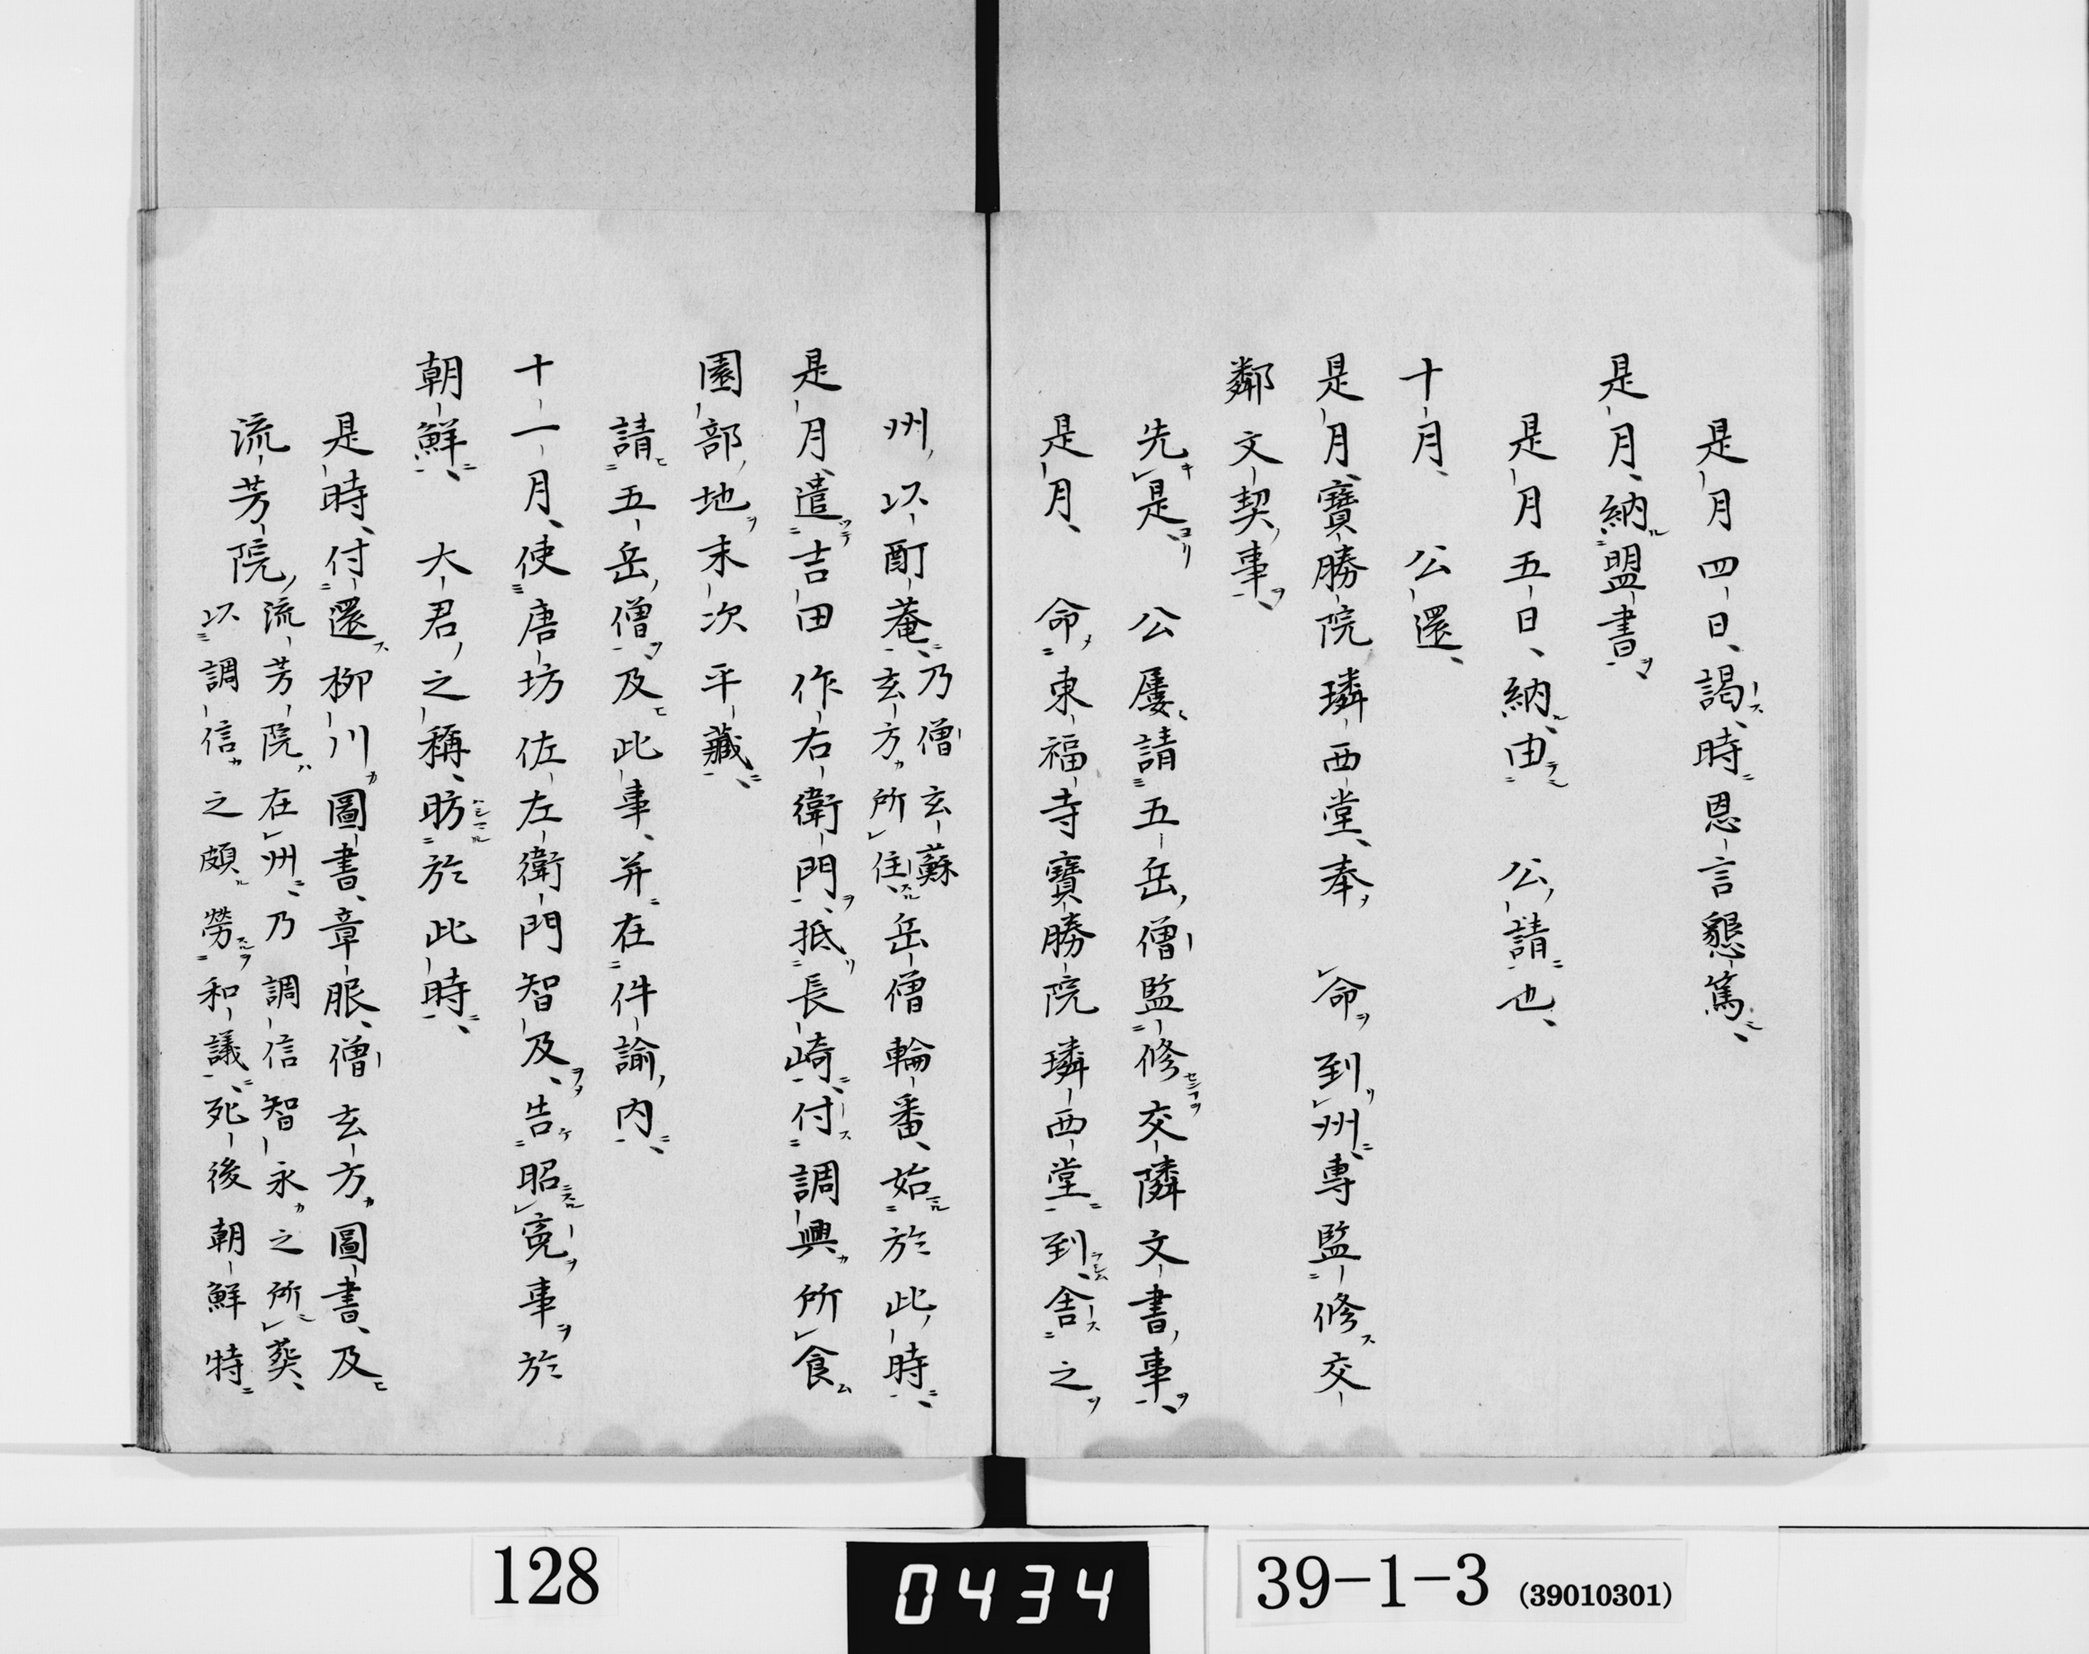 是月四日、謁時恩言懇篤、
是月、納盟書、
是月五日、納由、公請也、
十月、公還、
是月、寶勝院璘西堂、奉命到州、專監修交
鄰文契事、
先是、公屢請五岳僧監修交隣文書事、
是月、命東福寺寶勝院璘西堂到、舎之
州以酊菴、乃僧玄蘇
玄方所住、岳僧輪番、始於此時、
是月、遣吉田作右衛門、抵長崎、付調興所食
園部地末次平藏、
請五岳僧、及此事、并在件諭内、
十一月、使唐坊佐左衛門智及、告昭寃事於
朝鮮、大君之稱、昉於此時、
是時、付還柳川圖書、章服、僧玄方圖書、及
流芳院、流芳院在州、乃調信智永之所葬、
以調信之頗勞和議、死後朝鮮特
128
0434
39-1-3 (39010301)